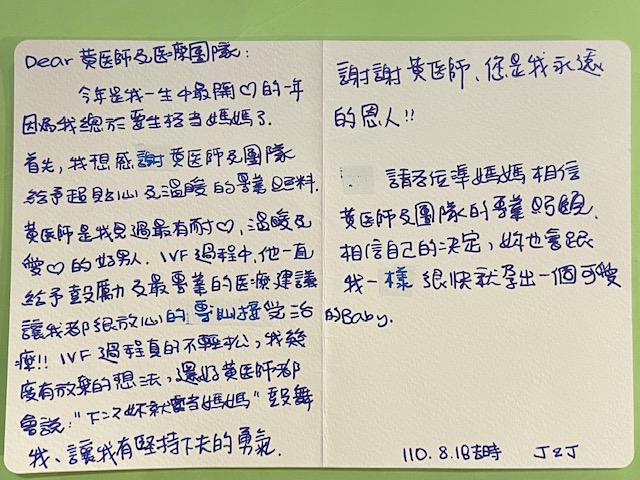 Dear 黃医師及医療團隊:
今年是我一生中最開♡的一年
因為我終於要生担當媽媽了.
首先,我想感謝黃医師及團隊
給予超貼心及溫暖的專業照料.
黃医師是我見過最有耐♡,溫暖及
愛♡的好男人. IVF 過程中,他一直
給予鼓勵及最專業的医療建議
讓我都很放心的專心接受治
療!! IVF 過程真的不輕松,我幾
度有放棄的想法,還好黃医師都
會說:"下次妳就要當媽媽"鼓舞
我、讓我有堅持下去的勇氣.
謝謝黃医師、您是我永遠
的恩人!!
請各位準媽媽相信
黃医師及團隊的專業
相信自己的決定,妳也會跟
我一樣很快就孕出一個可愛
的Baby.
110.8.18